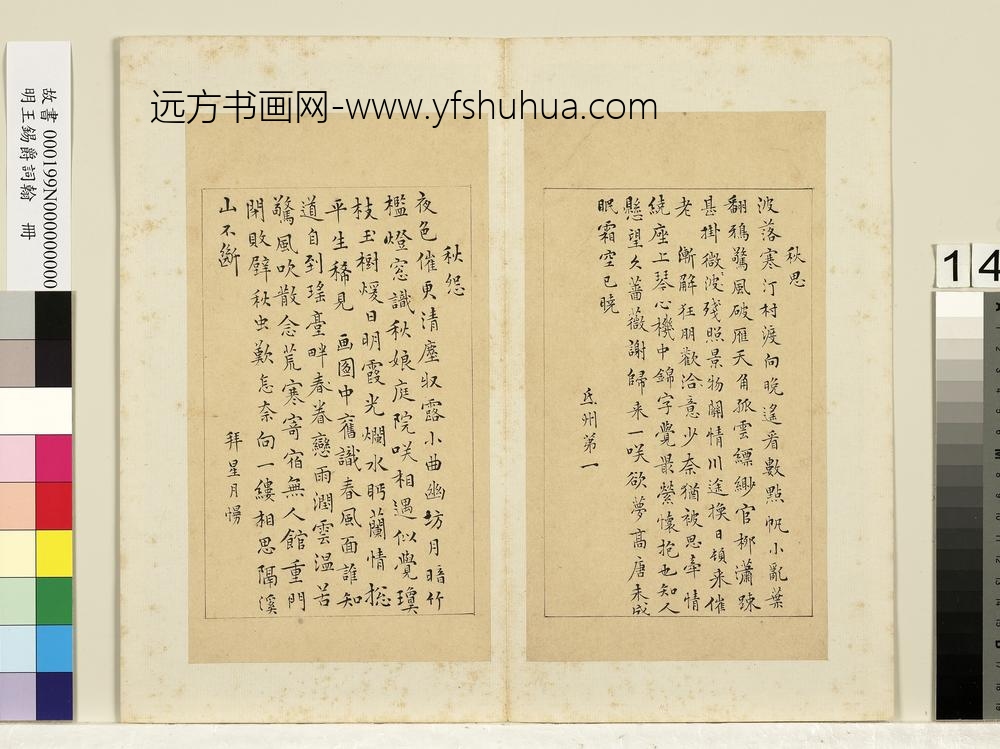 远方书画网-www.yfshuhua.com
故書 000199N000000000
明王錫爵詞翰　冊
14
秋思
波落寒汀村渡向晚遙看數點帆小亂葉
翻鴉驚風破雁天角孤雲縹緲官柳瀟疎
甚掛微微波殘照景物關情川途換目頓來催
老　漸解狂朋歡洽意少奈猶被思牽情
繞座上琴心機中錦字覺最縈懷抱也知人
懸望久薔薇謝歸来一咲欲夢高唐未成
眠霜空已曉
氐州第一
秋怨
夜色催更清塵収露小曲幽坊月暗竹
檻燈窓識秋娘庭院咲相遇似覺瓊
枝玉樹煖日明霞光爛水眄蘭情揔
平生稀見　画圖中舊識春風面誰知
道自到瑤臺畔春眷戀雨潤雲温苦
驚風吹散念荒寒寄宿無人館重門
閉敗壁秋虫歎怎奈向一縷相思隔溪
山不斷
拜星月慢